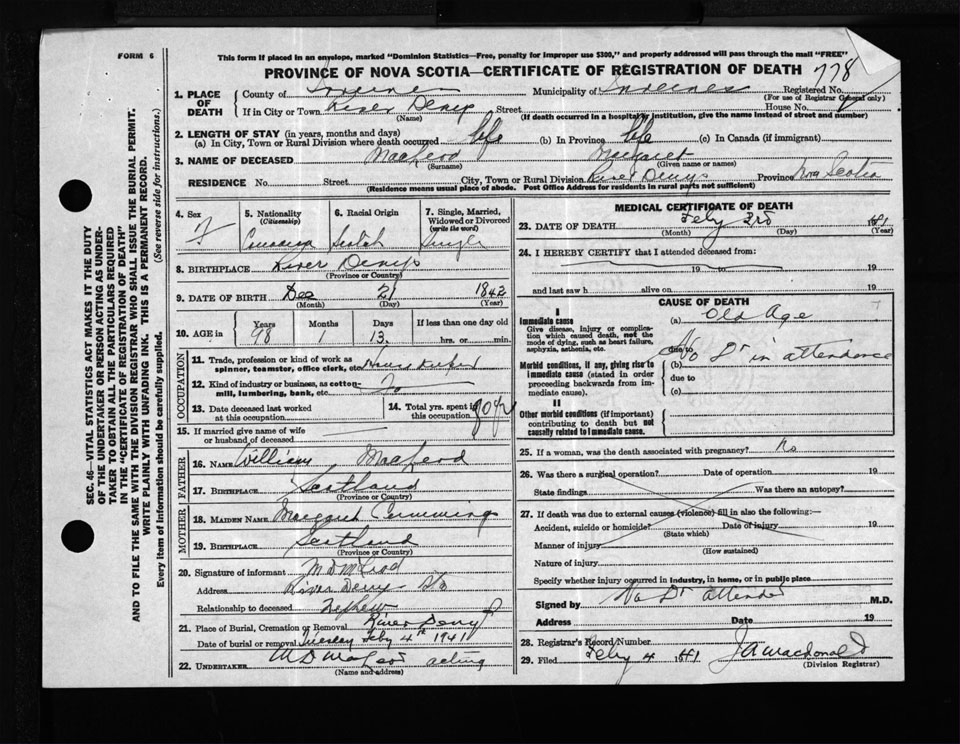 FORM 6
This form if placed in an envelope, marked "Dominion Statistics—Free, penalty for improper use $300," and properly addressed will pass through the mail "FREE"
PROVINCE OF NOVA SCOTIA—CERTIFICATE OF REGISTRATION OF DEATH 778
1. PLACE OF DEATH
County of Inverness Municipality of Inverness Registered No.
(For use of Registrar General only)
If in City or Town River Denys Street House No.
(Name) (If death occurred in a hospital or institution, give the name instead of street and number)
2. LENGTH OF STAY (in years, months and days)
(a) In City, Town or Rural Division where death occurred life (b) In Province life (c) In Canada (if immigrant)
3. NAME OF DECEASED MacLeod Margaret
(Surname) (Given name or names)
RESIDENCE No. Street City, Town or Rural Division River Denys Province Nova Scotia
(Residence means usual place of abode. Post Office Address for residents in rural parts not sufficient)
4. Sex F
5. Nationality (Citizenship) Canadian
6. Racial Origin Scotch
7. Single, Married, Widowed or Divorced (write the word) Single
8. BIRTHPLACE River Denys
(Province or Country)
9. DATE OF BIRTH Dec 21 1842
(Month) (Day) (Year)
10. AGE in Years Months Days If less than one day old
98 1 13 hrs. or min.
OCCUPATION
11. Trade, profession or kind of work as spinner, teamster, office clerk, etc.
12. Kind of industry or business, as cotton-mill, lumbering, bank, etc.
13. Date deceased last worked at this occupation
14. Total yrs. spent in this occupation
15. If married give name of wife or husband of deceased
FATHER
16. NAME William MacLeod
17. BIRTHPLACE Scotland
(Province or Country)
MOTHER
18. MAIDEN NAME Margaret Cummings
19. BIRTHPLACE Scotland
(Province or Country)
20. Signature of informant M D McLeod
Address River Denys
Relationship to deceased Nephew
21. Place of Burial, Cremation or Removal River Denys
Date of burial or removal Tuesday Feby 4th 1941
22. UNDERTAKER M D MacLeod acting
(Name and address)
MEDICAL CERTIFICATE OF DEATH
23. DATE OF DEATH Feby 3rd 1941
(Month) (Day) (Year)
24. I HEREBY CERTIFY that I attended deceased from:
19 to 19
and last saw h alive on 19
CAUSE OF DEATH
I
Immediate cause
Give disease, injury or complication which caused death, not the mode of dying, such as heart failure, asphyxia, asthenia, etc.
(a) Old Age
due to
No Dr in attendance
Morbid conditions, if any, giving rise to immediate cause (stated in order proceeding backwards from immediate cause).
(b)
due to
(c)
II
Other morbid conditions (if important) contributing to death but not causally related to immediate cause.
25. If a woman, was the death associated with pregnancy? No
26. Was there a surgical operation? Date of operation 19
State findings Was there an autopsy?
27. If death was due to external causes (violence) fill in also the following:—
Accident, suicide or homicide? Date of injury 19
(State which)
Manner of injury
(How sustained)
Nature of injury
Specify whether injury occurred in industry, in home, or in public place
Signed by No Dr attended M.D.
Address Date 19
28. Registrar's Record Number
29. Filed Feby 4 1941 J A Macdonald
(Division Registrar)
SEC. 46—VITAL STATISTICS ACT MAKES IT THE DUTY
OF THE UNDERTAKER OR PERSON ACTING AS UNDER-
TAKER TO OBTAIN ALL THE PARTICULARS REQUIRED
IN THE "CERTIFICATE OF REGISTRATION OF DEATH"
AND TO FILE THE SAME WITH THE DIVISION REGISTRAR WHO SHALL ISSUE THE BURIAL PERMIT.
WRITE PLAINLY WITH UNFADING INK. THIS IS A PERMANENT RECORD.
Every item of information should be carefully supplied. (See reverse side for instructions).